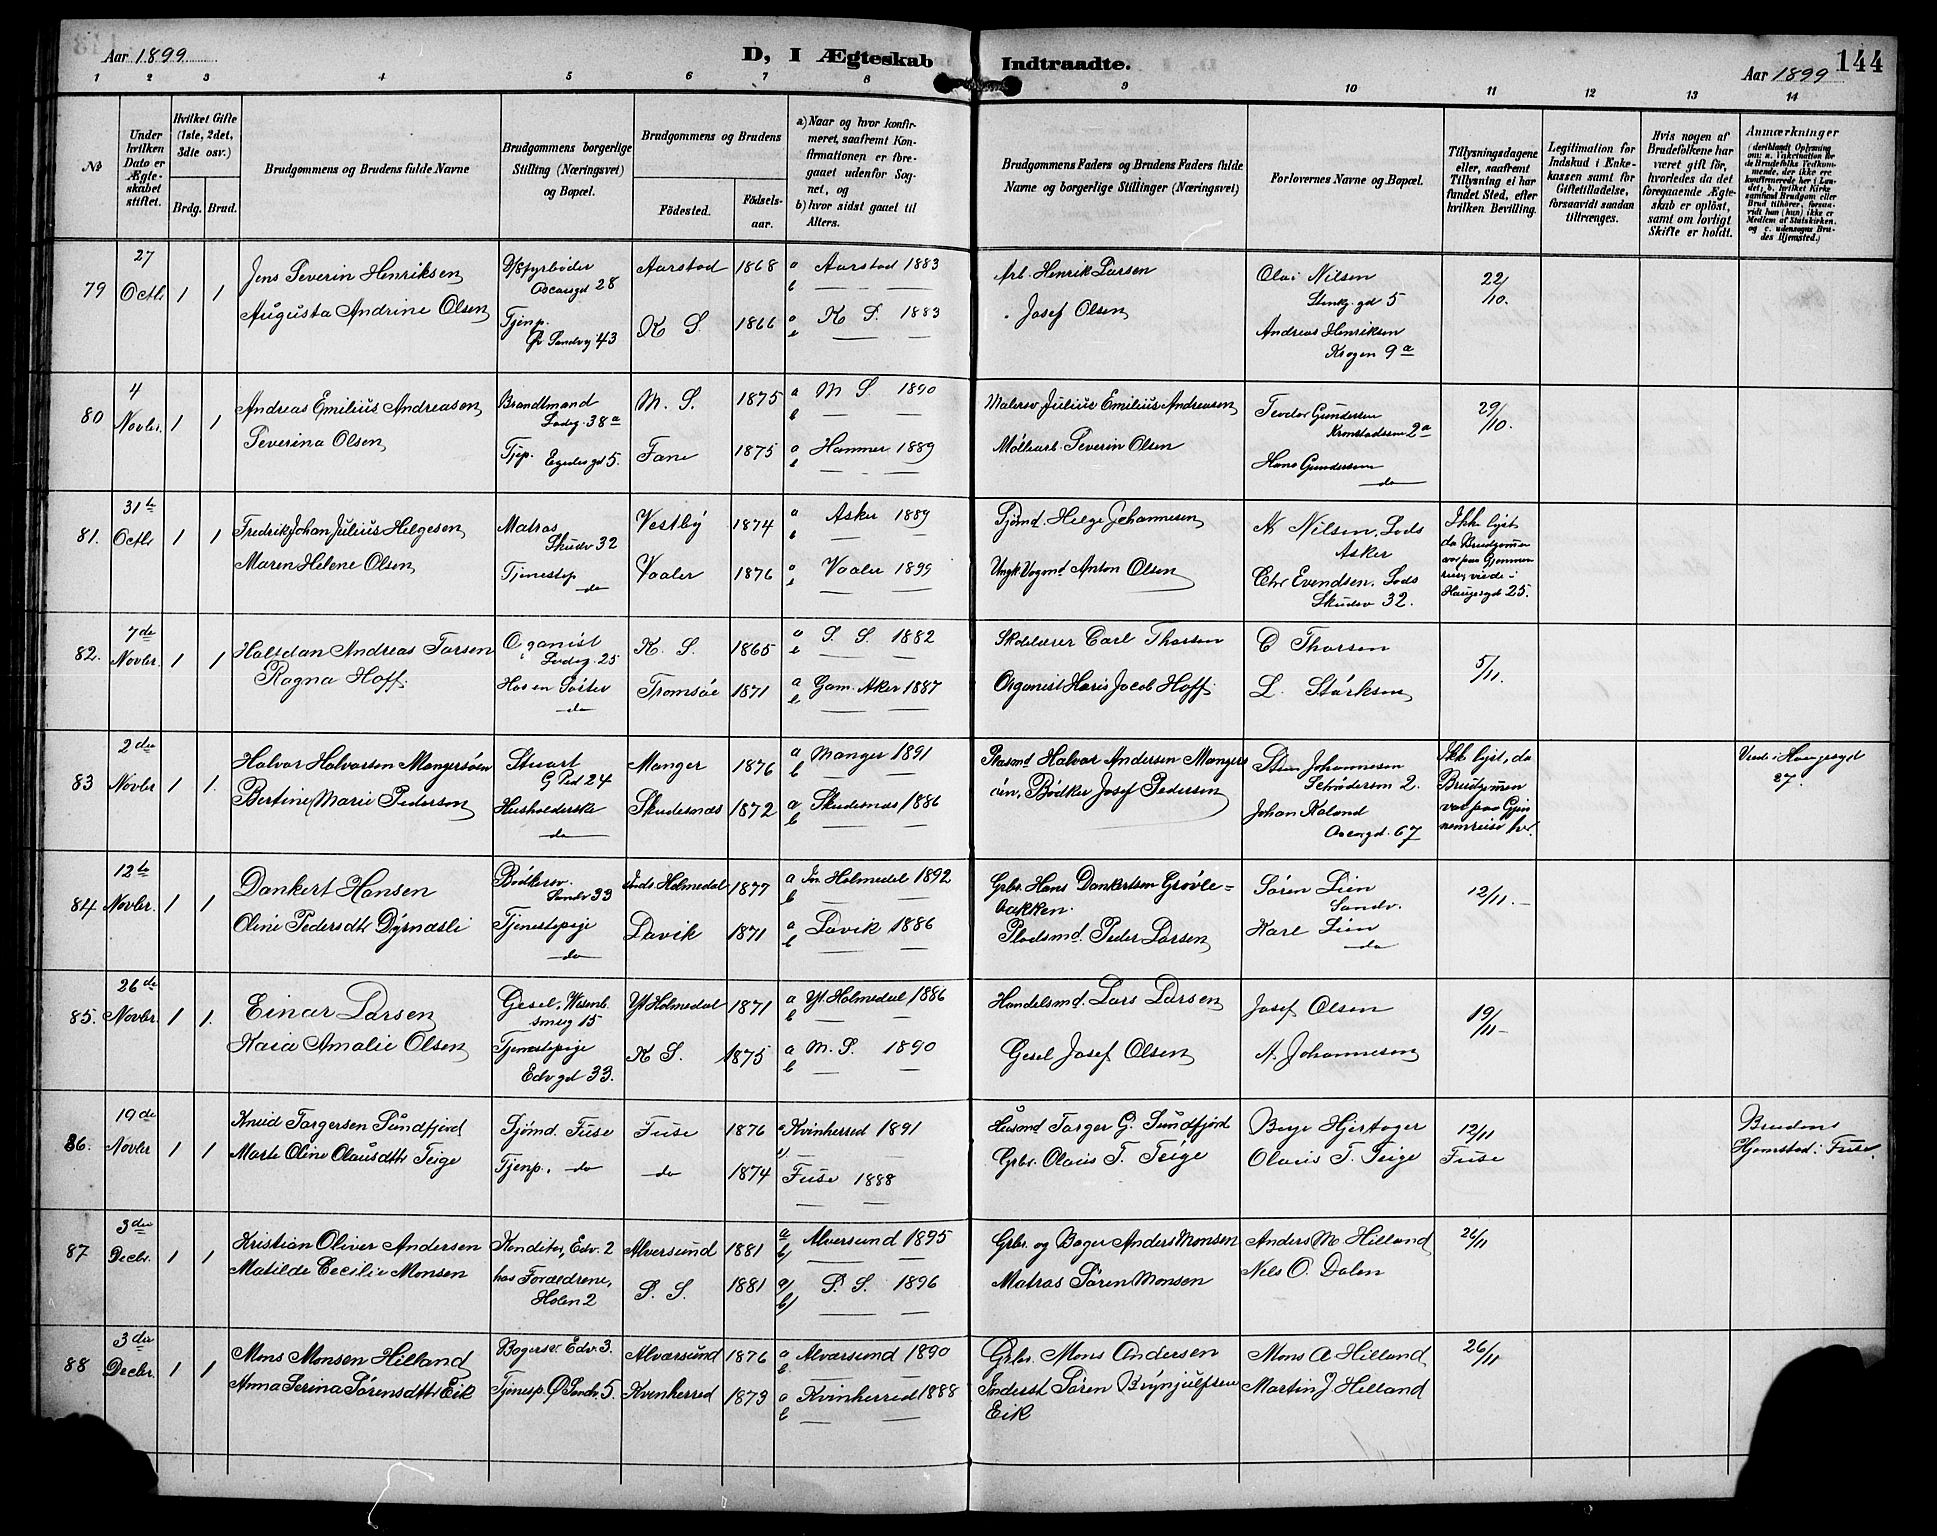 Aar 1899
D, I Ægteskab Indtraadte.
144
Aar 1899
1 2 3 4 5 6 7 8 9 10 11 12 13 14
№
Under hvilken Dato er Ægteskabet stiftet.
Hvilket Gifte (1ste, 2det, 3die osv.)
Brdg. Brud.
Brudgommens og Brudens fulde Navne
Brudgommens borgerlige Stilling (Næringsvei) og Bopæl.
Brudgommens og Brudens
Fødested.
Fødselsaar.
a) Naar og hvor konfirmeret, saafremt Konfirmationen er foregaaet udenfor Sognet, og
b) hvor sidst gaaet til Alters.
Brudgommens Faders og Brudens Faders fulde Navne og borgerlige Stillinger (Næringsvei)
Forlovernes Navne og Bopæl.
Tillysningsdagene eller, saafremt Tillysning ei har fundet Sted, efter hvilken Bevilling.
Legitimation for Indskud i Enkekassen samt for Giftetilladelse, forsaavidt saadan tiltrænges.
Hvis nogen af Brudefolkene har været gift før, hvorledes da det foregaaende Ægteskab er opløst, samt om lovligt Skifte er holdt.
Anmærkninger
79 27 Octb 1 1 Jens Severin Henriksen D/S fyrbøder Oscarsgd 28 Aarstad 1868 a Aarstad 1883 Arb. Henrik Larsen Olai Nilsen 22/10.
b — — Stenkj. gd 5
Augusta Andrine Olsen Tjenp. Ø Sandv 43 K S. 1866 a K S. 1883 Josef Olsen Andreas Henriksen
b — — Krogen 9a
80 4 Novbr. 1 1 Andreas Emilius Andreasen Brandtmand Ladeg. 38a M. S. 1875 a M S. 1890 Malersv. Julius Emilius Andreasen Teodor Gundersen 29/10.
b — — 2a
Severina Olsen Tjp. Egedesgd 5. Fane 1875 a Hammer 1889 Severin Olsen Hans Gundersen
b — — do
81. 31te Octb 1 1 Fredrik Johan Julius Helgesen Matros Skudv 32 Vestby 1874 a Asker 1889 Sjömd. Helge Johannesen N Nilsen, Lods Ikke lyst
b — — Asker da Brudgommen
Maren Helene Olsen Tjenestep do Vaaler 1876 a Vaaler 1899 Anton Olsen Chr Evendsen. Lods
b — — Skudsv 32. Haugesgd 25.
82. 7de Novbr. 1 1 Halfdan Andreas Tarsen Oganist Ladeg. 25 K. S. 1865 a S. S. 1882 Skolelærer Carl Thorsen C Thorsen 5/11.
Ragna Hoff. Hos en Søster do Tromsøe 1871 a Gam. Aker 1887 Organist Hans Jacob Hoff. L. Størksen
b — —
83 2den Novbr 1 1. Halvor Halvorsen Mangersöen Stuart G Pst 24 Manger 1876 a Manger 1891 Halvor Andersen Mangers Johannesen Ikke lyst, da Viet i Haugesgd
b — — öen, Schrödersm 2. Brudgommen 27.
Bertine Marie Pedersen Husholderske do Skudesnæs 1872 a Skudesnæs 1886 Bødker Josef Pedersen Johan Kaland var paa Gjen
b — — 67 nemreise her.
84 12te Novbr. 1 1 Dankert Hansen Bødkersv. Sandv 33 Inds. Holmedal 1877 a Inr Holmedal 1892 Grbr. Hans Dankertsen Grövle= Sören Lien 12/11. —
b — — bakken. Sandv.
Oline Pedersdtr Dyrnæsli Tjenestepige do Lavik 1871 a Lavik 1886 Pladsmd. Peder Larsen Karl Lien
b — — do
85. 26de Novbr. 1 1. Einar Larsen Gesel, smug 15 Yt Holmedal 1871 a Yt. Holmedal 1886 Handelsmd. Lars Larsen Josef Olsen 19/11 —
b — —
Kaia Amalie Olsen Tjenestepige Edv gd 33. K S. 1875 a M. S. 1890 Gesel Josef Olsen A. Johannesen
b — —
86. 19de Novbr 1 1 Knud Torgersen Sundfjord Sjömd. Fuse Fuse 1876 a Kvinherred 1891 Husmd Torger G. Sundfjord Berje Hjertager 12/11 Brudens
Marte Oline Olausdtr Teige Tjenp. do do 1874 Fuse 1888 Grbr. Olaus T. Teige Olaus T. Teige Fuse Hjemsted: Fuse.
87 3den Decbr. 1 1 Kristian Oliver Andersen Konditor, Edv. 2 Alversund 1881 a/b Alversund 1895 Grbr. og Bager Anders Monsen Anders M. Hilland 26/11
Matilde Cecilie Monsen hos Foræeldrene, Holen 2 S. S. 1881 a/b S. S. 1896 Matros Sören Monsen Nels O. Dalen
88 3die Decbr. 1 1 Mons Monsen Hilland Bagersv. Edv 3. Alversund 1876 a Alversund 1890 Grbr. Mons Andersen Mons A Hilland 26/11
b — —
Anna Serina Sörensdtr Eik Tjenesp. Ø Sandv. 5. Kvinherred 1873 a Kvinherred 1888 Inderst Sören Brynjulfsen Martin J. Hilland
b — — Eik